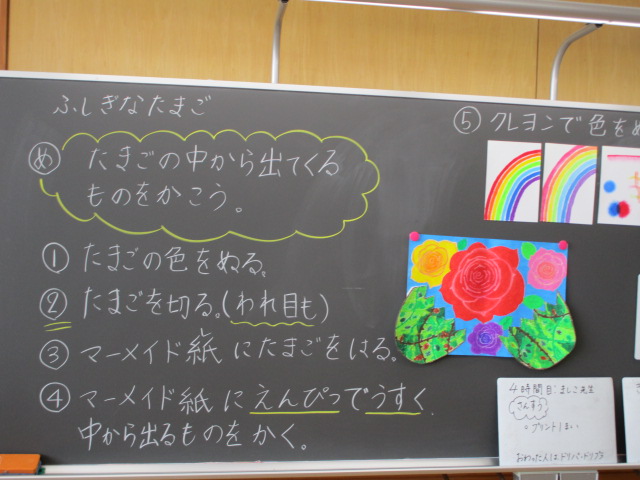 ふしぎなたまご
め たまごの中から出てくる
ものをかこう。
① たまごの色をぬる。
② たまごを切る。(われ目も)
③ マーメイド紙にたまごをはる。
④ マーメイド紙にえんぴつでうすく
中から出るものをかく。
⑤ クレヨンで色をぬ
4時間目:ましこ先生
さんすう
プリント1まい
おわった人は、ドリパ・ドリプラ